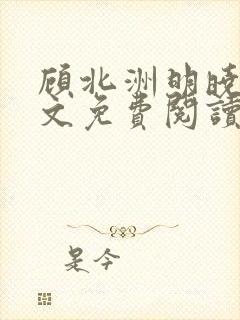 顾北洲明晓
文免费阅读
是今